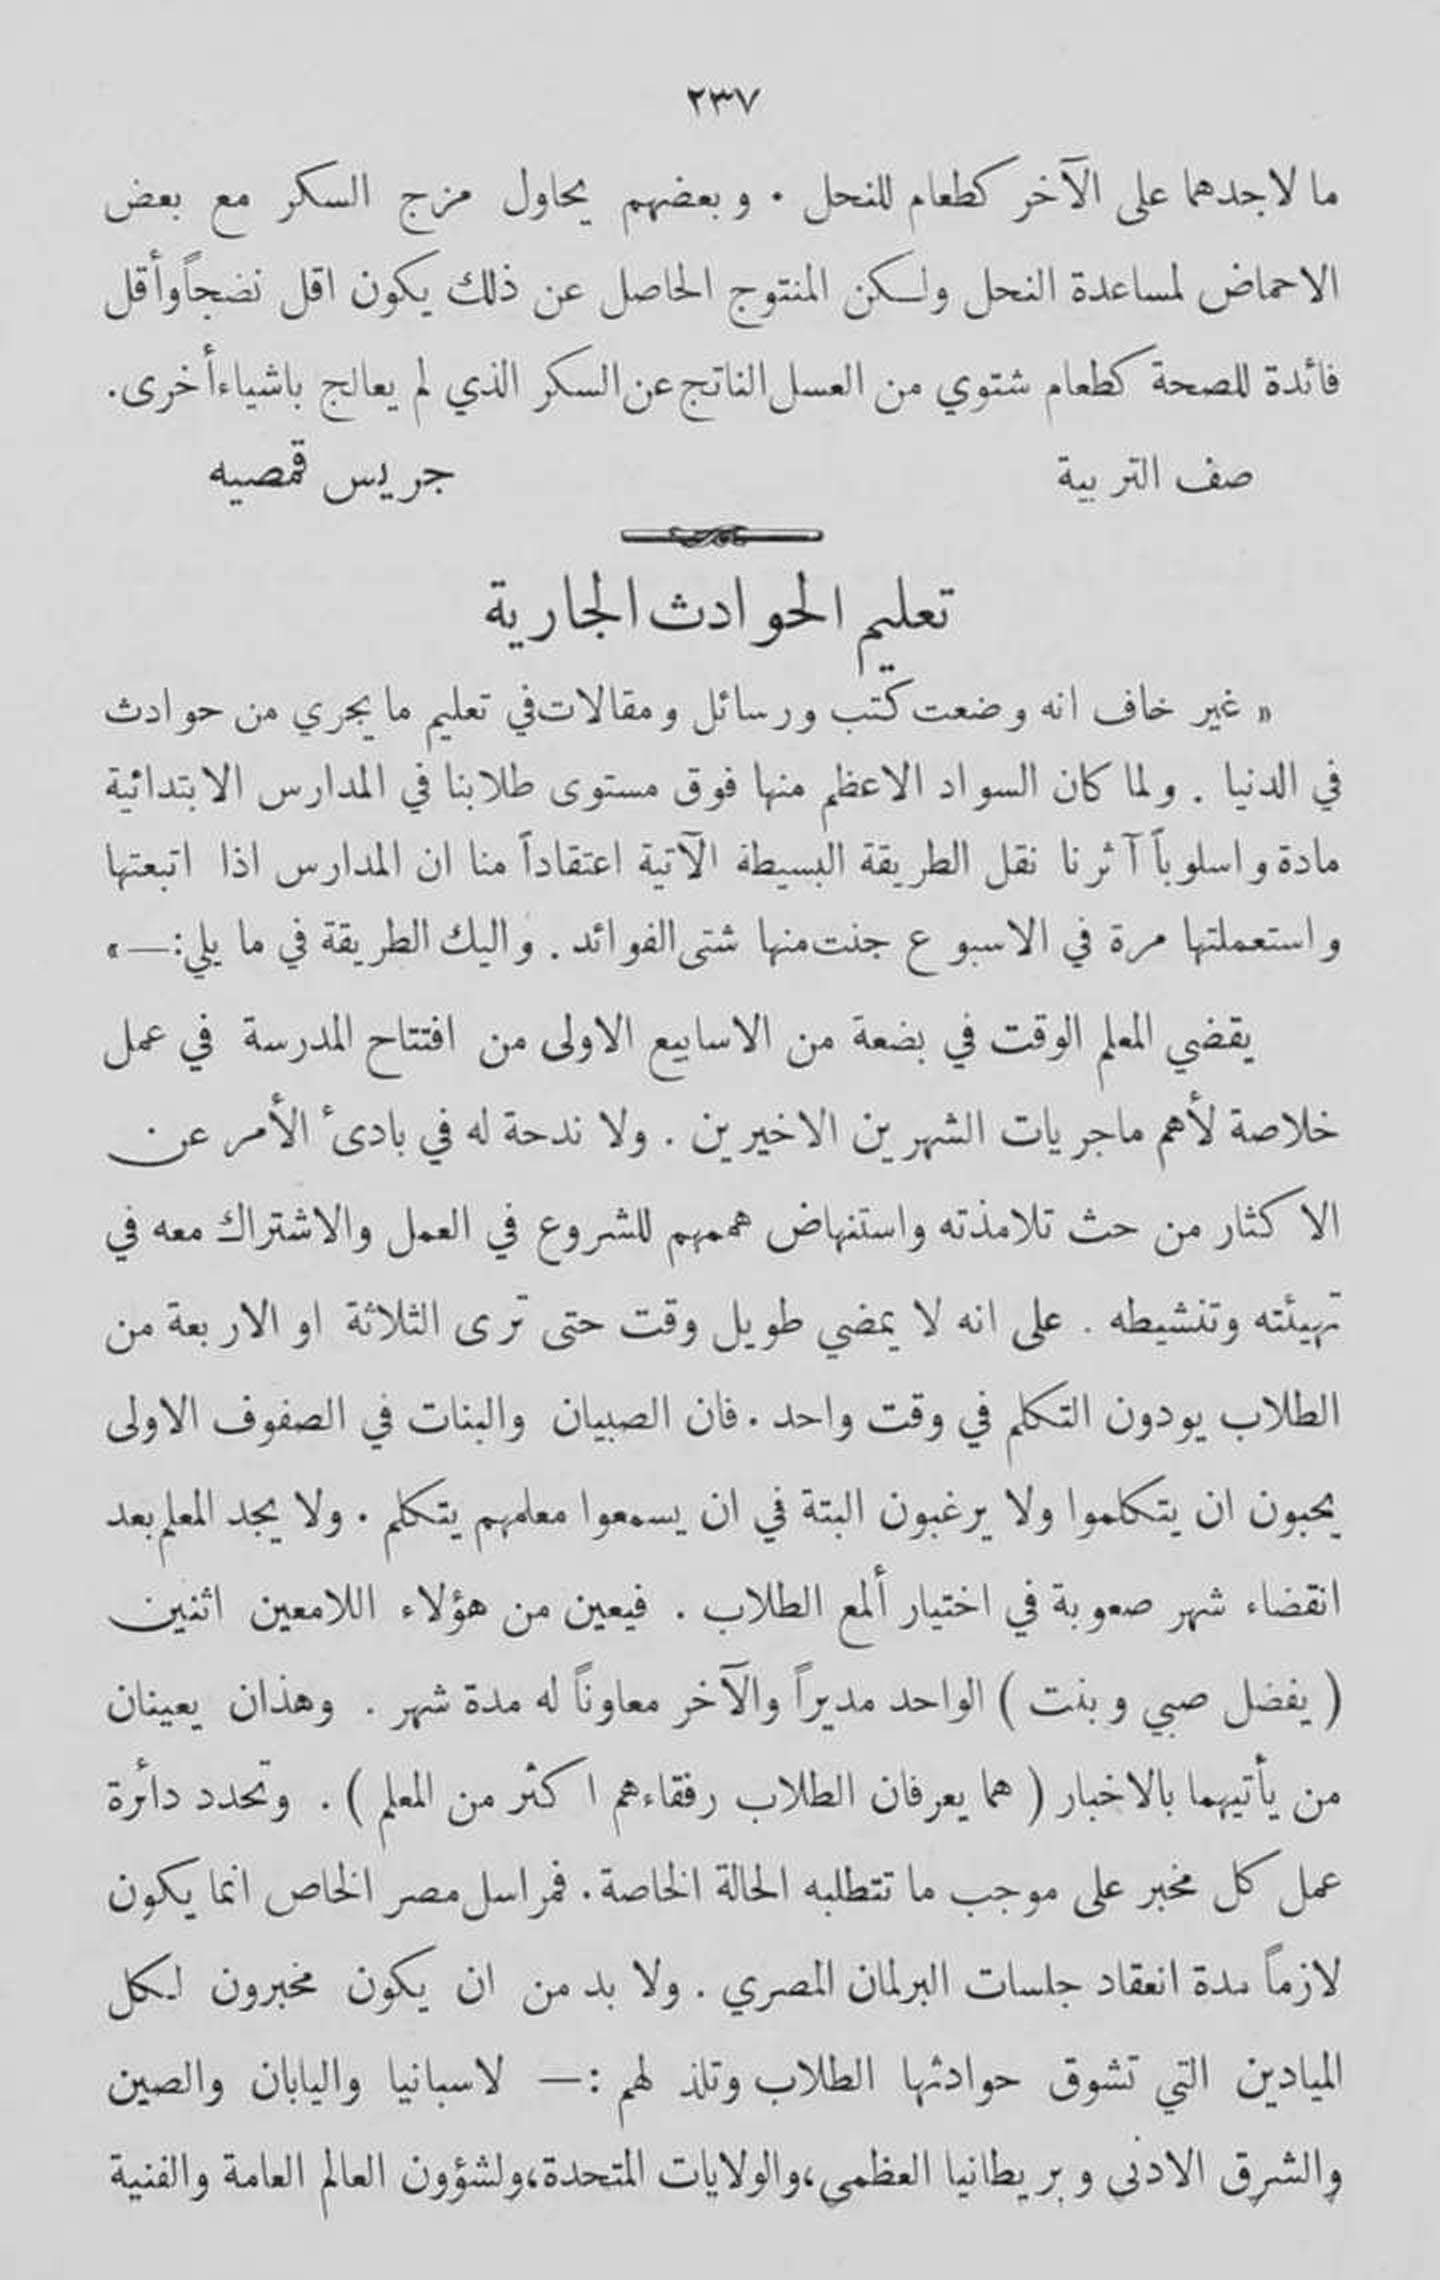 ٢٣٧
ما لاجدهما على الآخر كطعام للنحل . وبعضهم يحاول مزج السكر مع بعض
الاحماض لمساعدة النحل ولكن المنتوج الحاصل عن ذلك يكون اقل نضجاً وأقل
فائدة للصحة كطعام شتوي من العسل الناتج عن السكر الذي لم يعالج باشياء أخرى.
صف التربية جريس قمصيه
تعليم الحوادث الجارية
« غير خاف انه وضعت كتب ورسائل ومقالات في تعليم ما يجري من حوادث
في الدنيا . ولما كان السواد الاعظم منها فوق مستوى طلابنا في المدارس الابتدائية
مادة واسلوباً آثرنا نقل الطريقة البسيطة الآتية اعتقاداً منا ان المدارس اذا اتبعتها
واستعملتها مرة في الاسبوع جنت منها شتى الفوائد . واليك الطريقة في ما يلي:— »
يقضي المعلم الوقت في بضعة من الاسابيع الاولى من افتتاح المدرسة في عمل
خلاصة لأهم ماجريات الشهرين الاخيرين . ولا ندحة له في بادئ الأمر عن
الاكثار من حث تلامذته واستنهاض هممهم للشروع في العمل والاشتراك معه في
تهيئته وتنشيطه . على انه لا يمضي طويل وقت حتى ترى الثلاثة او الاربعة من
الطلاب يودون التكلم في وقت واحد . فان الصبيان والبنات في الصفوف الاولى
يحبون ان يتكلموا ولا يرغبون البتة في ان يسمعوا معلمهم يتكلم . ولا يجد المعلم بعد
انقضاء شهر صعوبة في اختيار ألمع الطلاب . فيعين من هؤلاء اللامعين اثنين
( يفضل صبي وبنت ) الواحد مديراً والآخر معاوناً له مدة شهر . وهذان يعينان
من يأتيهما بالاخبار ( هما يعرفان الطلاب رفقاءهم اكثر من المعلم ) . وتحدد دائرة
عمل كل مخبر على موجب ما تتطلبه الحالة الخاصة . فمراسل مصر الخاص انما يكون
لازماً مدة انعقاد جلسات البرلمان المصري . ولا بد من ان يكون مخبرون لكل
الميادين التي تشوق حوادثها الطلاب وتلذ لهم :— لاسبانيا واليابان والصين
والشرق الادنى وبريطانيا العظمى، والولايات المتحدة، ولشؤون العالم العامة والفنية